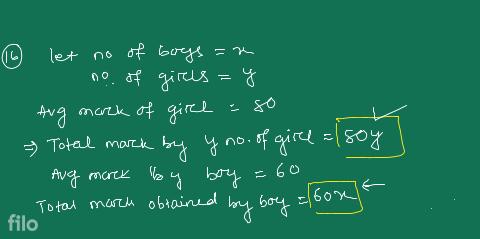 16 let no of boys = x
no. of girls = y
Avg mark of girl = 80
⇒ Total mark by y no. of girl = 80y
Avg mark by boy = 60
Total mark obtained by boy = 60x ←
filo